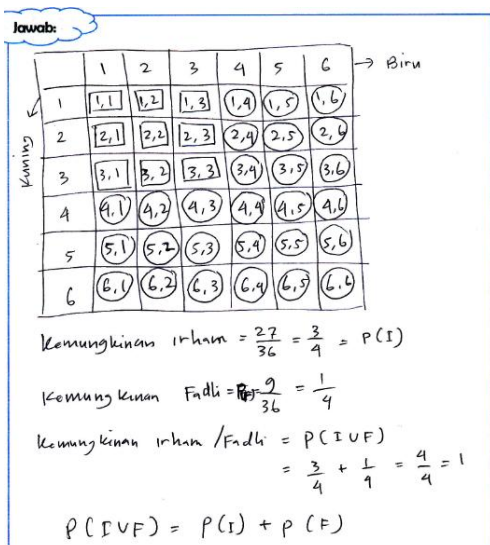 Jawab:
1 2 3 4 5 6 → Biru
Kuning
1 1,1 1,2 1,3 1,4 1,5 1,6
2 2,1 2,2 2,3 2,4 2,5 2,6
3 3,1 3,2 3,3 3,4 3,5 3,6
4 4,1 4,2 4,3 4,4 4,5 4,6
5 5,1 5,2 5,3 5,4 5,5 5,6
6 6,1 6,2 6,3 6,4 6,5 6,6
Kemungkinan irham = 27/36 = 3/4 = P(I)
Kemungkinan Fadli = 9/36 = 1/4
Kemungkinan irham / Fadli = P(I∪F)
= 3/4 + 1/4 = 4/4 = 1
P(I∪F) = P(I) + P(F)